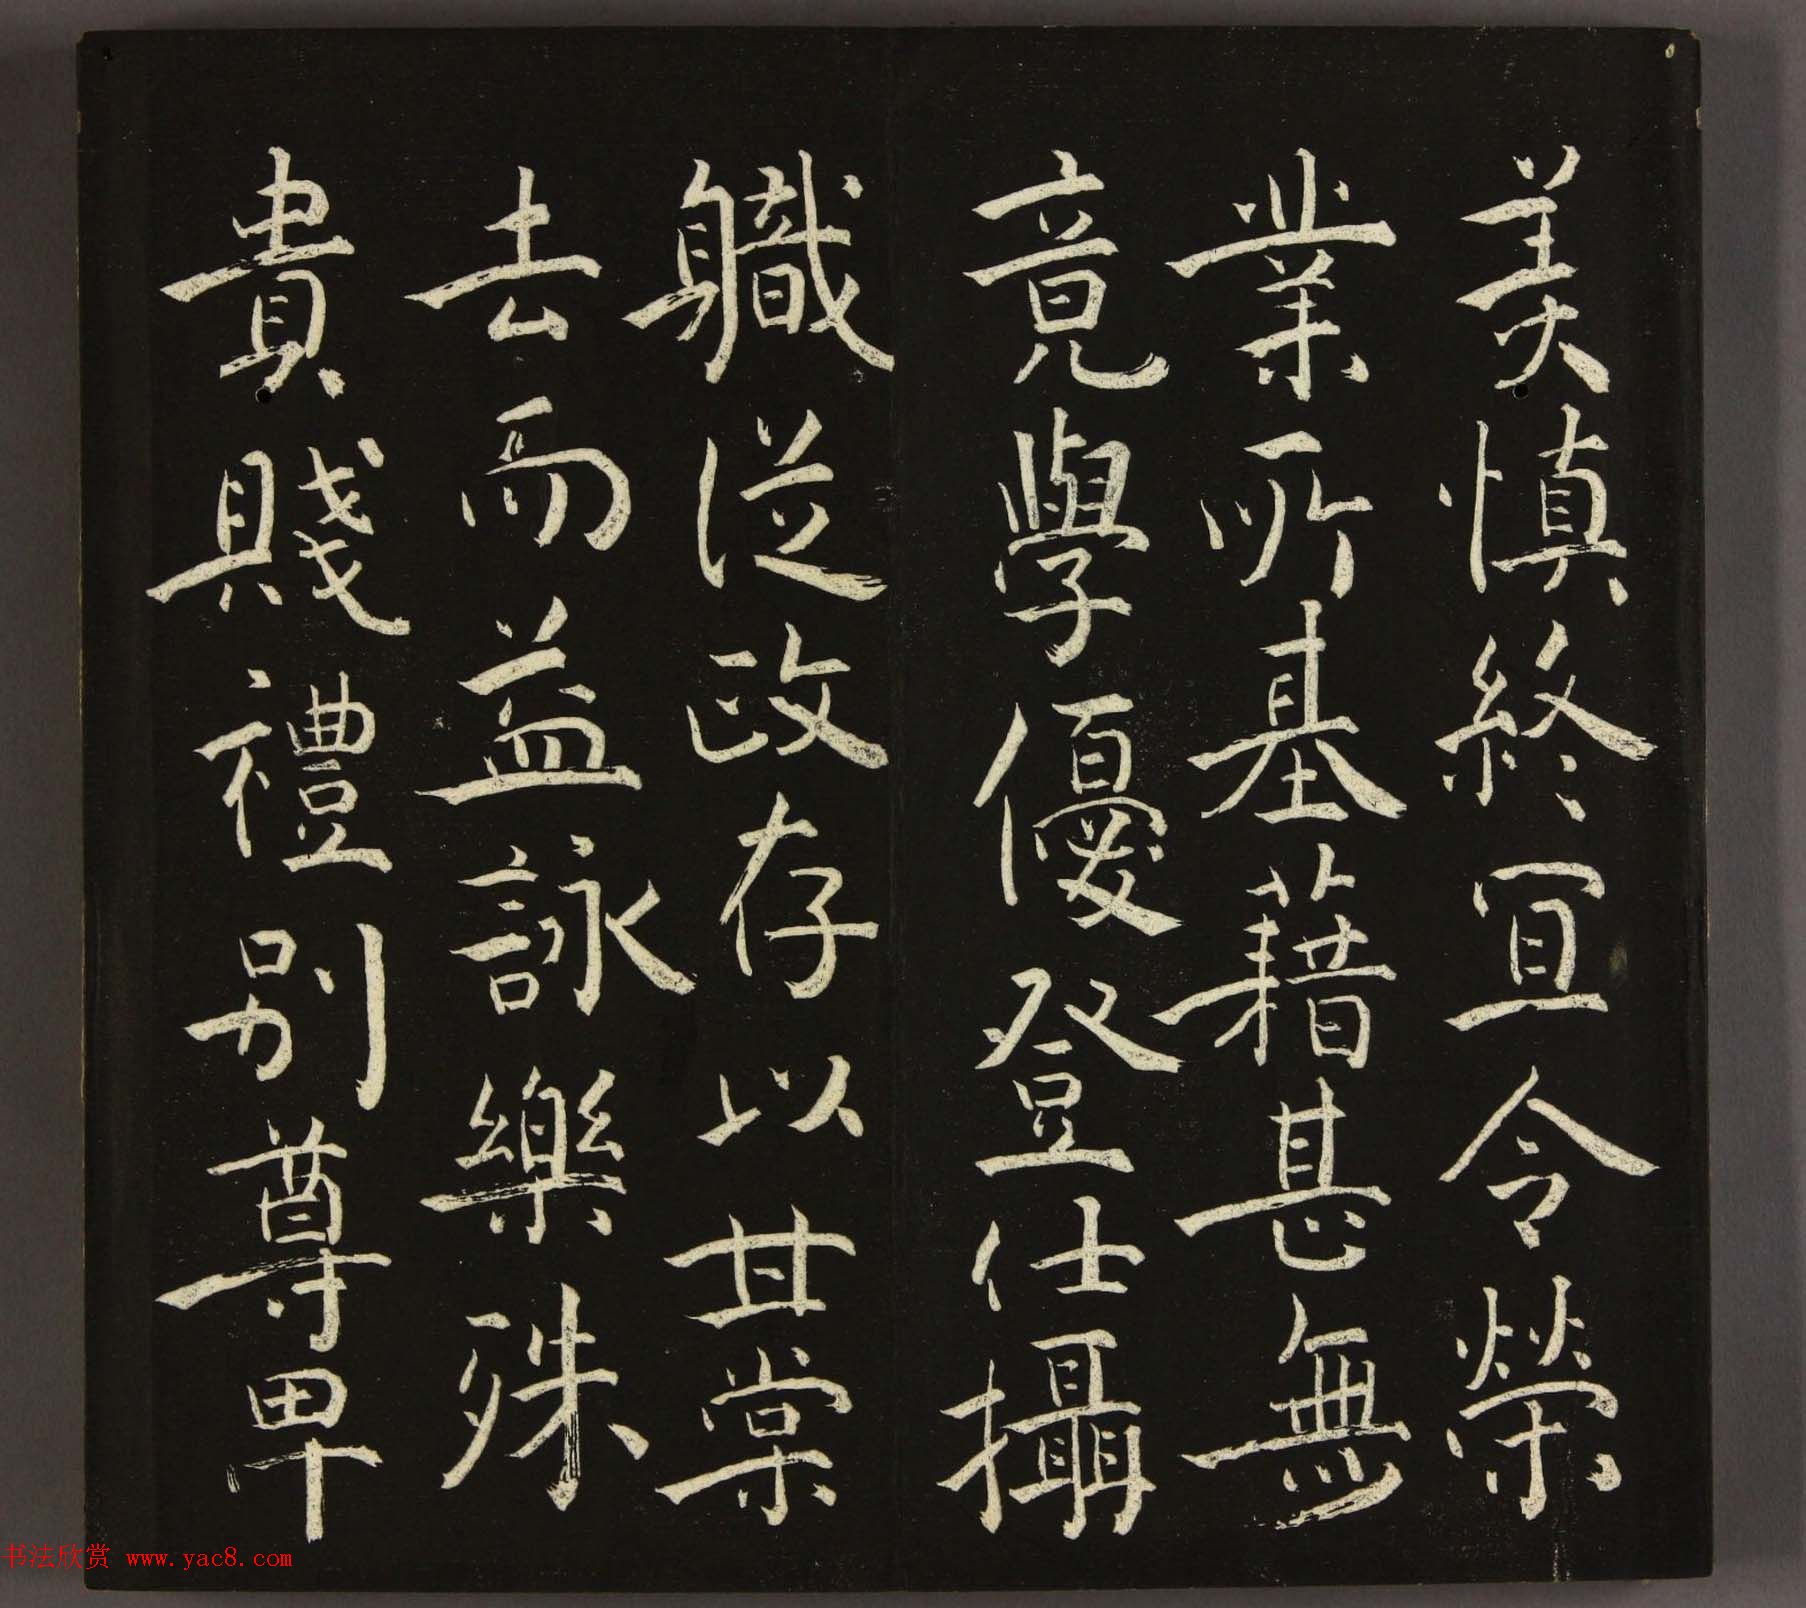 美慎終宜令榮
業所基藉甚無
竟學優登仕攝
軄從政存以甘棠
去而益詠樂殊
貴賤禮別尊卑
书法欣赏 www.yac8.com